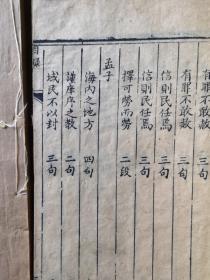 有罪不敢赦 三句
有罪不敢赦 三句
信則民任焉 三句
信則民任焉 三句
擇可勞而勞 二段
孟子
海內之地方 四句
謹庠序之教 二句
域民不以封 三句
目録